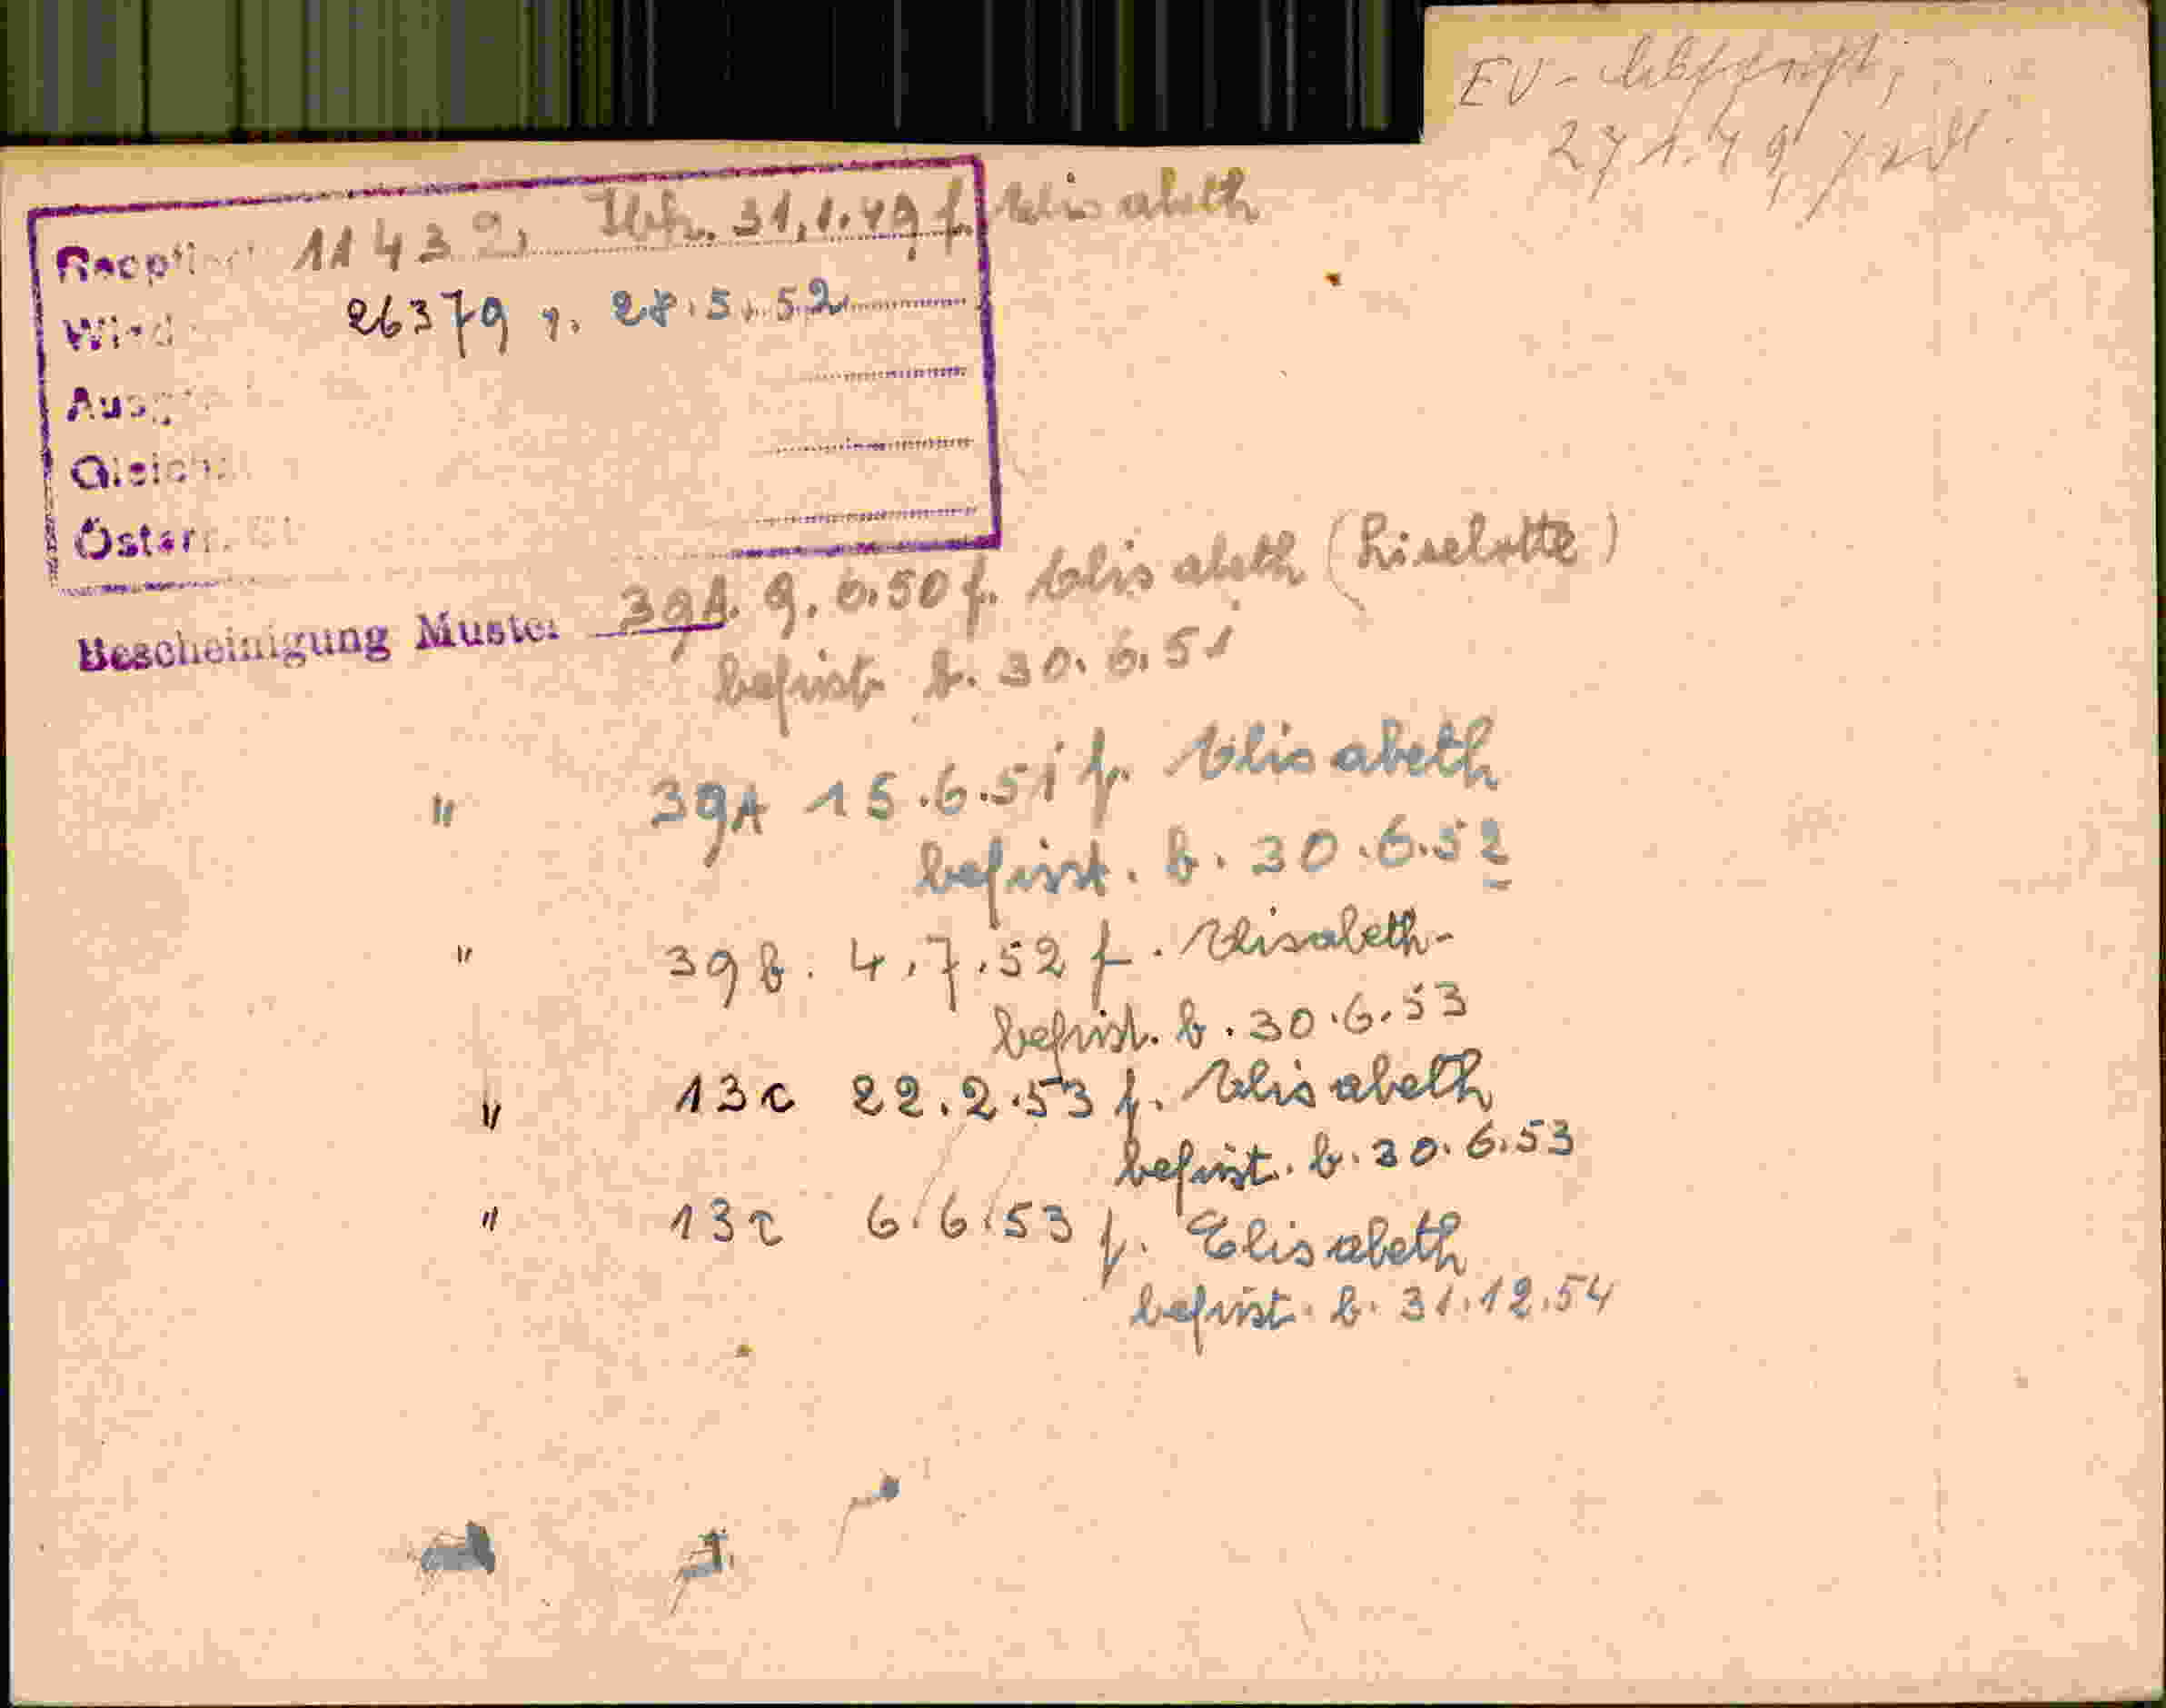 EV-Abschrift,
27.1.49
Reopt 11432, Urk. 31.1.49 f. Elisabeth
Wied 26379 v. 28.5.52
Ausg
Gleich
Österr.
Bescheinigung Muster 39A. 9.6.50 f. Elisabeth (Liselotte)
befrist. b. 30.6.51
" 39A 15.6.51 f. Elisabeth
befrist. b. 30.6.52
" 39b. 4.7.52 f. Elisabeth-
befrist. b. 30.6.53
" 13c 22.2.53 f. Elisabeth
befrist. b. 30.6.53
" 13c 6.6.53 f. Elisabeth
befrist. b. 31.12.54